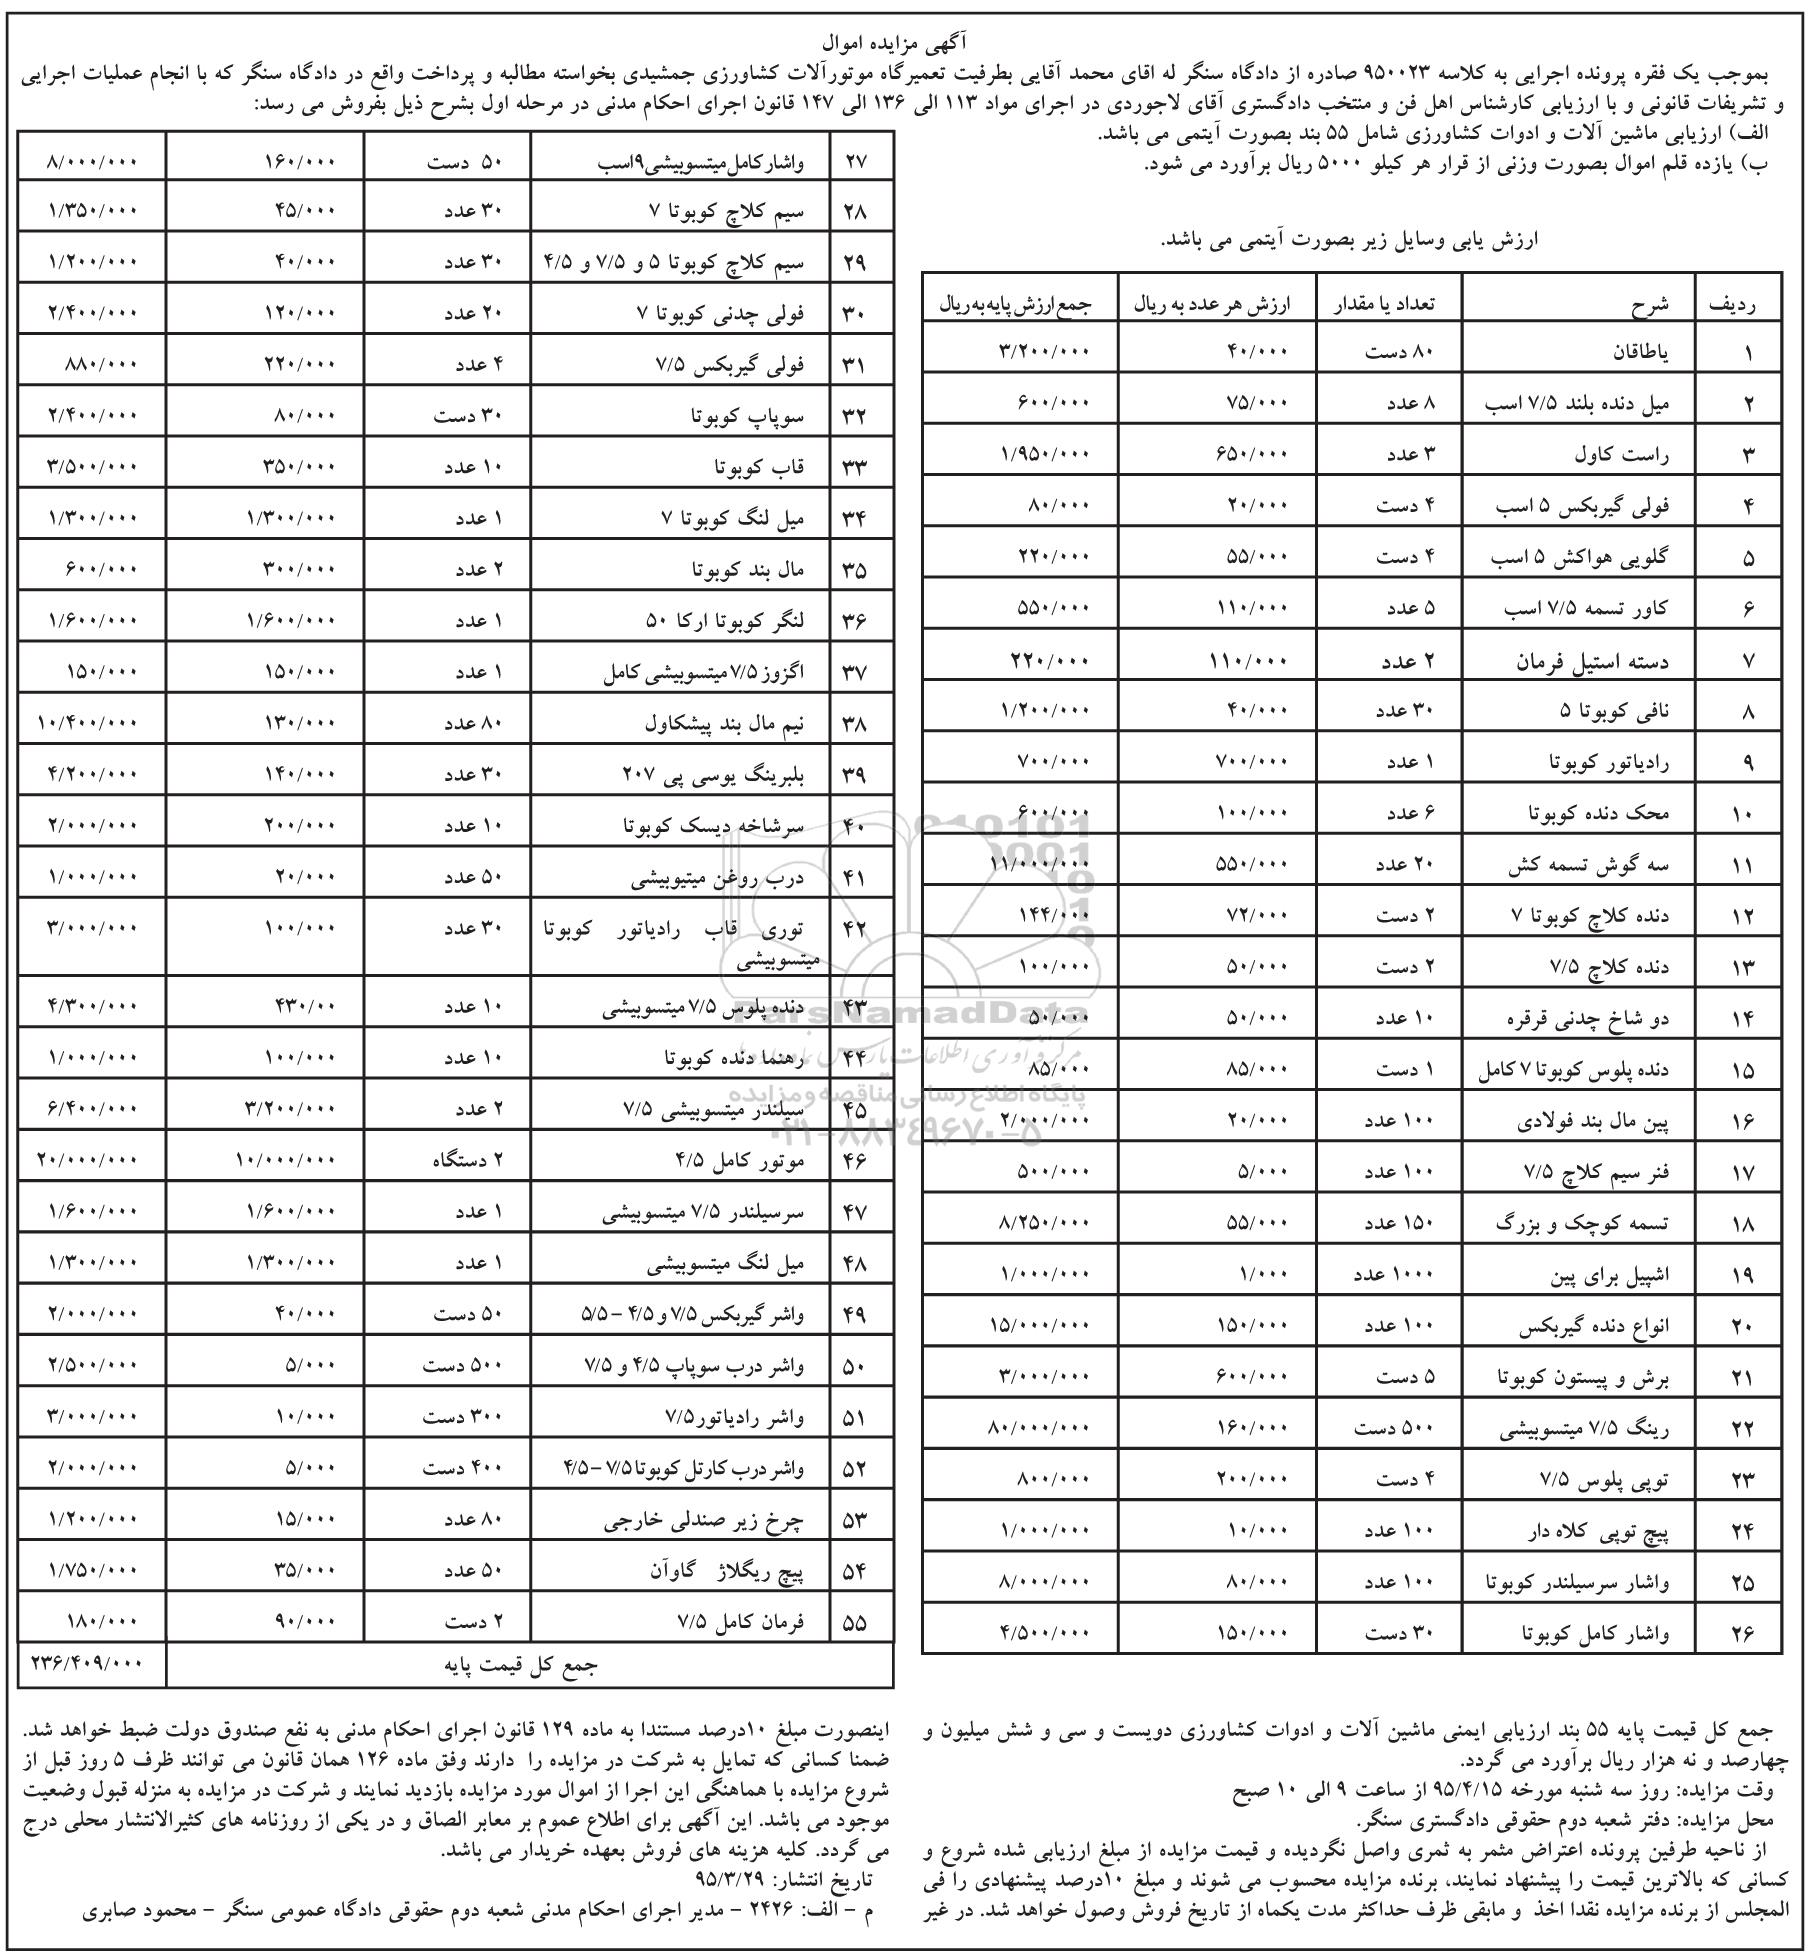 آگهی مزایده اموال
بموجب یک فقره پرونده اجرایی به کلاسه ۹۵۰۰۲۳ صادره از دادگاه سنگر له اقای محمد آقایی بطرفیت تعمیرگاه موتورآلات کشاورزی جمشیدی بخواسته مطالبه و پرداخت واقع در دادگاه سنگر که با انجام عملیات اجرایی
و تشریفات قانونی و با ارزیابی کارشناس اهل فن و منتخب دادگستری آقای لاجوردی در اجرای مواد ۱۱۳ الی ۱۳۶ الی ۱۴۷ قانون اجرای احکام مدنی در مرحله اول بشرح ذیل بفروش می رسد:
الف) ارزیابی ماشین آلات و ادوات کشاورزی شامل ۵۵ بند بصورت آیتمی می باشد.
ب) یازده قلم اموال بصورت وزنی از قرار هر کیلو ۵۰۰۰ ریال برآورد می شود.
ارزش یابی وسایل زیر بصورت آیتمی می باشد.
ردیف شرح تعداد یا مقدار ارزش هر عدد به ریال جمع ارزش پایه به ریال
۱ یاطاقان ۸۰ دست ۴۰/۰۰۰ ۳/۲۰۰/۰۰۰
۲ میل دنده بلند ۷/۵ اسب ۸ عدد ۷۵/۰۰۰ ۶۰۰/۰۰۰
۳ راست کاول ۳ عدد ۶۵۰/۰۰۰ ۱/۹۵۰/۰۰۰
۴ فولی گیربکس ۵ اسب ۴ دست ۲۰/۰۰۰ ۸۰/۰۰۰
۵ گلویی هواکش ۵ اسب ۴ دست ۵۵/۰۰۰ ۲۲۰/۰۰۰
۶ کاور تسمه ۷/۵ اسب ۵ عدد ۱۱۰/۰۰۰ ۵۵۰/۰۰۰
۷ دسته استیل فرمان ۲ عدد ۱۱۰/۰۰۰ ۲۲۰/۰۰۰
۸ نافی کوبوتا ۵ ۳۰ عدد ۴۰/۰۰۰ ۱/۲۰۰/۰۰۰
۹ رادیاتور کوبوتا ۱ عدد ۷۰۰/۰۰۰ ۷۰۰/۰۰۰
۱۰ محک دنده کوبوتا ۶ عدد ۱۰۰/۰۰۰ ۶۰۰/۰۰۰
۱۱ سه گوش تسمه کش ۲۰ عدد ۵۵۰/۰۰۰ ۱۱/۰۰۰/۰۰۰
۱۲ دنده کلاچ کوبوتا ۷ ۲ دست ۷۲/۰۰۰ ۱۴۴/۰۰۰
۱۳ دنده کلاچ ۷/۵ ۲ دست ۵۰/۰۰۰ ۱۰۰/۰۰۰
۱۴ دو شاخ چدنی قرقره ۱۰ عدد ۵۰/۰۰۰ ۵۰/۰۰۰
۱۵ دنده پلوس کوبوتا ۷ کامل ۱ دست ۸۵/۰۰۰ ۸۵/۰۰۰
۱۶ پین مال بند فولادی ۱۰۰ عدد ۲۰/۰۰۰ ۲/۰۰۰/۰۰۰
۱۷ فنر سیم کلاچ ۷/۵ ۱۰۰ عدد ۵/۰۰۰ ۵۰۰/۰۰۰
۱۸ تسمه کوچک و بزرگ ۱۵۰ عدد ۵۵/۰۰۰ ۸/۲۵۰/۰۰۰
۱۹ اشپیل برای پین ۱۰۰۰ عدد ۱/۰۰۰ ۱/۰۰۰/۰۰۰
۲۰ انواع دنده گیربکس ۱۰۰ عدد ۱۵۰/۰۰۰ ۱۵/۰۰۰/۰۰۰
۲۱ برش و پیستون کوبوتا ۵ دست ۶۰۰/۰۰۰ ۳/۰۰۰/۰۰۰
۲۲ رینگ ۷/۵ میتسوبیشی ۵۰۰ دست ۱۶۰/۰۰۰ ۸۰/۰۰۰/۰۰۰
۲۳ توپی پلوس ۷/۵ ۴ دست ۲۰۰/۰۰۰ ۸۰۰/۰۰۰
۲۴ پیچ توپی کلاه دار ۱۰۰ عدد ۱۰/۰۰۰ ۱/۰۰۰/۰۰۰
۲۵ واشار سرسیلندر کوبوتا ۱۰۰ عدد ۸۰/۰۰۰ ۸/۰۰۰/۰۰۰
۲۶ واشار کامل کوبوتا ۳۰ دست ۱۵۰/۰۰۰ ۴/۵۰۰/۰۰۰
۲۷ واشار کامل میتسوبیشی ۹ اسب ۵۰ دست ۱۶۰/۰۰۰ ۸/۰۰۰/۰۰۰
۲۸ سیم کلاچ کوبوتا ۷ ۳۰ عدد ۴۵/۰۰۰ ۱/۳۵۰/۰۰۰
۲۹ سیم کلاچ کوبوتا ۵ و ۷/۵ و ۴/۵ ۳۰ عدد ۴۰/۰۰۰ ۱/۲۰۰/۰۰۰
۳۰ فولی چدنی کوبوتا ۷ ۲۰ عدد ۱۲۰/۰۰۰ ۲/۴۰۰/۰۰۰
۳۱ فولی گیربکس ۷/۵ ۴ عدد ۲۲۰/۰۰۰ ۸۸۰/۰۰۰
۳۲ سوپاپ کوبوتا ۳۰ دست ۸۰/۰۰۰ ۲/۴۰۰/۰۰۰
۳۳ قاب کوبوتا ۱۰ عدد ۳۵۰/۰۰۰ ۳/۵۰۰/۰۰۰
۳۴ میل لنگ کوبوتا ۷ ۱ عدد ۱/۳۰۰/۰۰۰ ۱/۳۰۰/۰۰۰
۳۵ مال بند کوبوتا ۲ عدد ۳۰۰/۰۰۰ ۶۰۰/۰۰۰
۳۶ لنگر کوبوتا ارکا ۵۰ ۱ عدد ۱/۶۰۰/۰۰۰ ۱/۶۰۰/۰۰۰
۳۷ اگزوز ۷/۵ میتسوبیشی کامل ۱ عدد ۱۵۰/۰۰۰ ۱۵۰/۰۰۰
۳۸ نیم مال بند پیشکاول ۸۰ عدد ۱۳۰/۰۰۰ ۱۰/۴۰۰/۰۰۰
۳۹ بلبرینگ یوسی پی ۲۰۷ ۳۰ عدد ۱۴۰/۰۰۰ ۴/۲۰۰/۰۰۰
۴۰ سرشاخه دیسک کوبوتا ۱۰ عدد ۲۰۰/۰۰۰ ۲/۰۰۰/۰۰۰
۴۱ درب روغن میتیوبیشی ۵۰ عدد ۲۰/۰۰۰ ۱/۰۰۰/۰۰۰
۴۲ توری قاب رادیاتور کوبوتا ۳۰ عدد ۱۰۰/۰۰۰ ۳/۰۰۰/۰۰۰
میتسوبیشی
۴۳ دنده پلوس ۷/۵ میتسوبیشی ۱۰ عدد ۴۳۰/۰۰ ۴/۳۰۰/۰۰۰
۴۴ رهنما دنده کوبوتا ۱۰ عدد ۱۰۰/۰۰۰ ۱/۰۰۰/۰۰۰
۴۵ سیلندر میتسوبیشی ۷/۵ ۲ عدد ۳/۲۰۰/۰۰۰ ۶/۴۰۰/۰۰۰
۴۶ موتور کامل ۴/۵ ۲ دستگاه ۱۰/۰۰۰/۰۰۰ ۲۰/۰۰۰/۰۰۰
۴۷ سرسیلندر ۷/۵ میتسوبیشی ۱ عدد ۱/۶۰۰/۰۰۰ ۱/۶۰۰/۰۰۰
۴۸ میل لنگ میتسوبیشی ۱ عدد ۱/۳۰۰/۰۰۰ ۱/۳۰۰/۰۰۰
۴۹ واشر گیربکس ۷/۵ و ۴/۵ – ۵/۵ ۵۰ دست ۴۰/۰۰۰ ۲/۰۰۰/۰۰۰
۵۰ واشر درب سوپاپ ۴/۵ و ۷/۵ ۵۰۰ دست ۵/۰۰۰ ۲/۵۰۰/۰۰۰
۵۱ واشر رادیاتور۷/۵ ۳۰۰ دست ۱۰/۰۰۰ ۳/۰۰۰/۰۰۰
۵۲ واشر درب کارتل کوبوتا ۷/۵ – ۴/۵ ۴۰۰ دست ۵/۰۰۰ ۲/۰۰۰/۰۰۰
۵۳ چرخ زیر صندلی خارجی ۸۰ عدد ۱۵/۰۰۰ ۱/۲۰۰/۰۰۰
۵۴ پیچ ریگلاژ گاوآن ۵۰ عدد ۳۵/۰۰۰ ۱/۷۵۰/۰۰۰
۵۵ فرمان کامل ۷/۵ ۲ دست ۹۰/۰۰۰ ۱۸۰/۰۰۰
جمع کل قیمت پایه ۲۳۶/۴۰۹/۰۰۰
ParsNamadData
پایگاه اطلاع رسانی مناقصه و مزایده
۰۲۱-۸۸۳۴۹۶۷۰-۵
جمع کل قیمت پایه ۵۵ بند ارزیابی ایمنی ماشین آلات و ادوات کشاورزی دویست و سی و شش میلیون و
چهارصد و نه هزار ریال برآورد می گردد.
وقت مزایده: روز سه شنبه مورخه ۹۵/۴/۱۵ از ساعت ۹ الی ۱۰ صبح
محل مزایده: دفتر شعبه دوم حقوقی دادگستری سنگر.
از ناحیه طرفین پرونده اعتراض مثمر به ثمری واصل نگردیده و قیمت مزایده از مبلغ ارزیابی شده شروع و
کسانی که بالاترین قیمت را پیشنهاد نمایند، برنده مزایده محسوب می شوند و مبلغ ۱۰درصد پیشنهادی را فی
المجلس از برنده مزایده نقدا اخذ و مابقی ظرف حداکثر مدت یکماه از تاریخ فروش وصول خواهد شد. در غیر
اینصورت مبلغ ۱۰درصد مستندا به ماده ۱۲۹ قانون اجرای احکام مدنی به نفع صندوق دولت ضبط خواهد شد.
ضمنا کسانی که تمایل به شرکت در مزایده را دارند وفق ماده ۱۲۶ همان قانون می توانند ظرف ۵ روز قبل از
شروع مزایده با هماهنگی این اجرا از اموال مورد مزایده بازدید نمایند و شرکت در مزایده به منزله قبول وضعیت
موجود می باشد. این آگهی برای اطلاع عموم بر معابر الصاق و در یکی از روزنامه های کثیرالانتشار محلی درج
می گردد. کلیه هزینه های فروش بعهده خریدار می باشد.
تاریخ انتشار: ۹۵/۳/۲۹
م – الف: ۲۴۲۶ – مدیر اجرای احکام مدنی شعبه دوم حقوقی دادگاه عمومی سنگر – محمود صابری